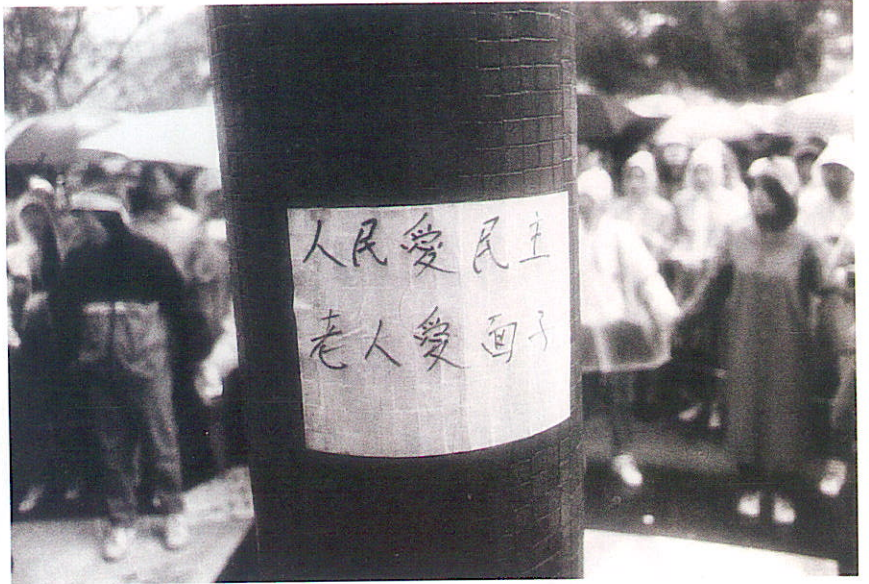 人民愛民主
老人愛面子